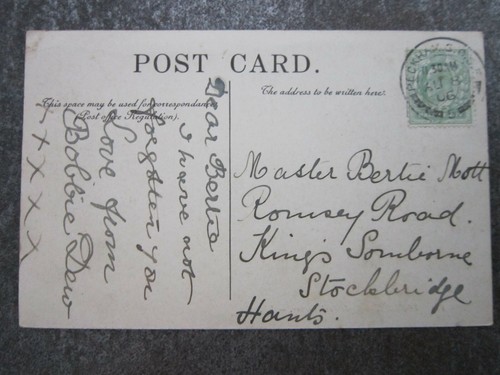 POST CARD.
This space may be used for correspondance
(Post office Regulation).
The address to be written here.
Dear Bertie
I have not
forgotten you
Love from
Bobbie Dew
x x x x x
PECKHAM S.
06
Master Bertie Mott
Romsey Road.
King's Somborne
Stockbridge
Hants.